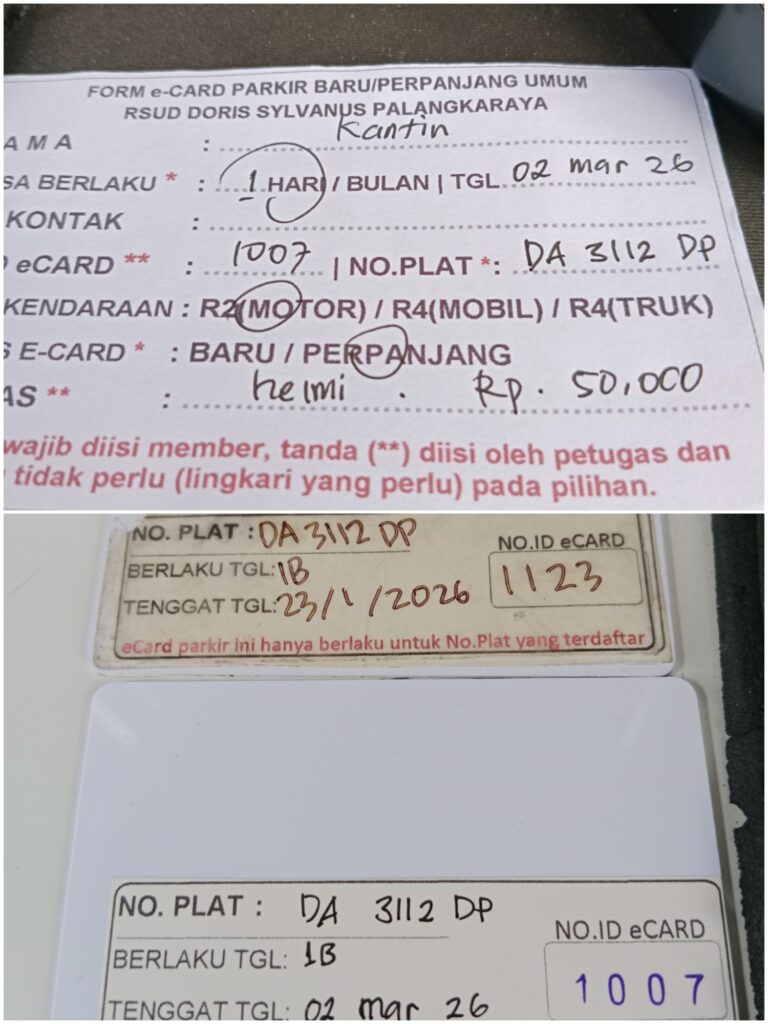 FORM e-CARD PARKIR BARU/PERPANJANG UMUM
RSUD DORIS SYLVANUS PALANGKARAYA
AMA : Kantin
SA BERLAKU * : 1 HARI / BULAN | TGL 02 mar 26
KONTAK :
eCARD ** : 1007 | NO.PLAT *: DA 3112 DP
KENDARAAN : R2(MOTOR) / R4(MOBIL) / R4(TRUK)
S E-CARD * : BARU / PERPANJANG
AS ** : helmi . Rp. 50,000
wajib diisi member, tanda (**) diisi oleh petugas dan
tidak perlu (lingkari yang perlu) pada pilihan.
NO. PLAT : DA 3112 DP
NO.ID eCARD
BERLAKU TGL: 1B
1123
TENGGAT TGL: 23/1/2026
eCard parkir ini hanya berlaku untuk No.Plat yang terdaftar
NO. PLAT : DA 3112 DP
NO.ID eCARD
BERLAKU TGL: 1B
1007
TENGGAT TGL: 02 mar 26